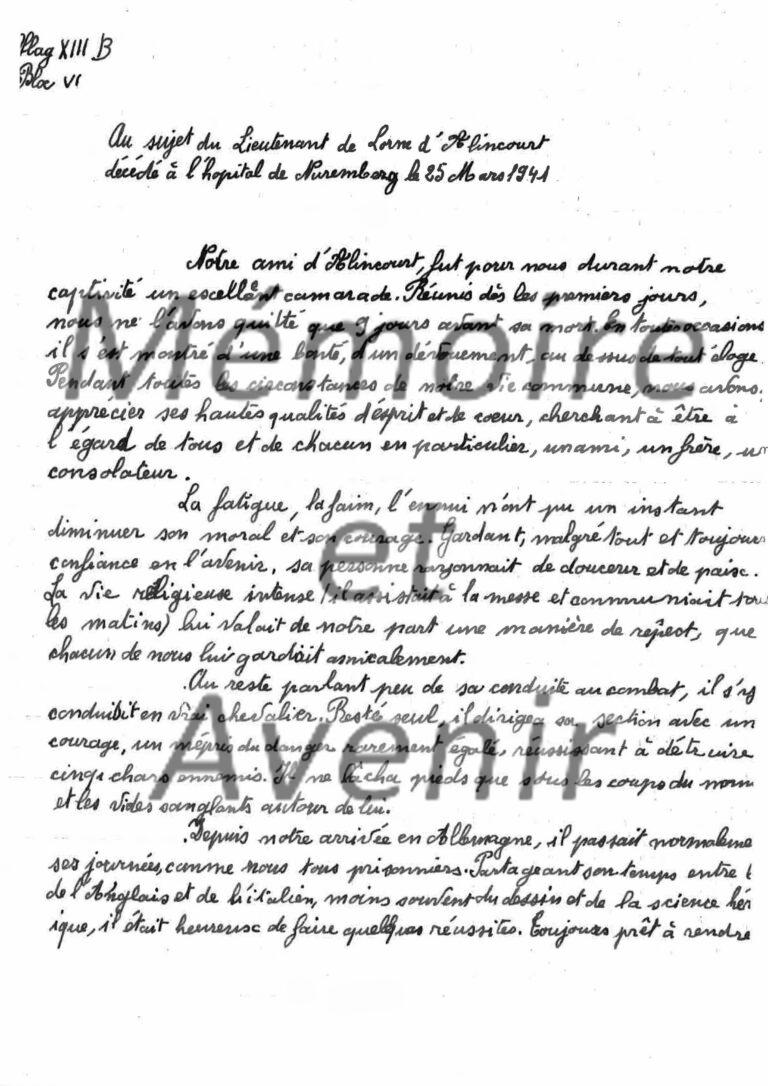 Oflag XIII B
Bloc VI
Au sujet du Lieutenant de Lorne d'Alincourt
décédé à l'hopital de Nuremberg le 25 Mars 1941
Notre ami d'Alincourt, fut pour nous durant notre
captivité un excellent camarade. Réunis dès les premiers jours,
nous ne l'avons quitté que 9 jours avant sa mort. En toutes occasions
il s'est montré d'une bonté, d'un dévouement, au dessus de tout éloge
Pendant toutes les circonstances de notre vie commune, nous avons
apprécier ses hautes qualités d'ésprit et de coeur, cherchant à être à
l'égard de tous et de chacun en particulier, un ami, un frère, un
consolateur.
La fatigue, la faim, l'ennui n'ont pu un instant
diminuer son moral et son courage. Gardant, malgré tout et toujours
confiance en l'avenir, sa personne rayonnait de douceur et de paix.
La vie religieuse intense (il assistait à la messe et communiait tous
les matins) lui valait de notre part une manière de répect, que
chacun de nous lui gardait amicalement.
Au reste parlant peu de sa conduite au combat, il s'y
conduisit en vrai chevalier. Resté seul, il dirigea sa section avec un
courage, un mépris du danger rarement égalé, réussissant à détruire
cinq chars ennemis. Il ne lâcha pieds que sous les coups du nom
et les vides sanglants autour de lui.
Depuis notre arrivée en Allemagne, il passait normaleme
ses journées, comme nous tous prisonniers. Partageant son temps entre l
de l'Anglais et de l'italien, moins souvent du dessin et de la science hér
ique, il était heureux de faire quelques réussites. Toujours prêt à rendre
Mémoire
et
Avenir